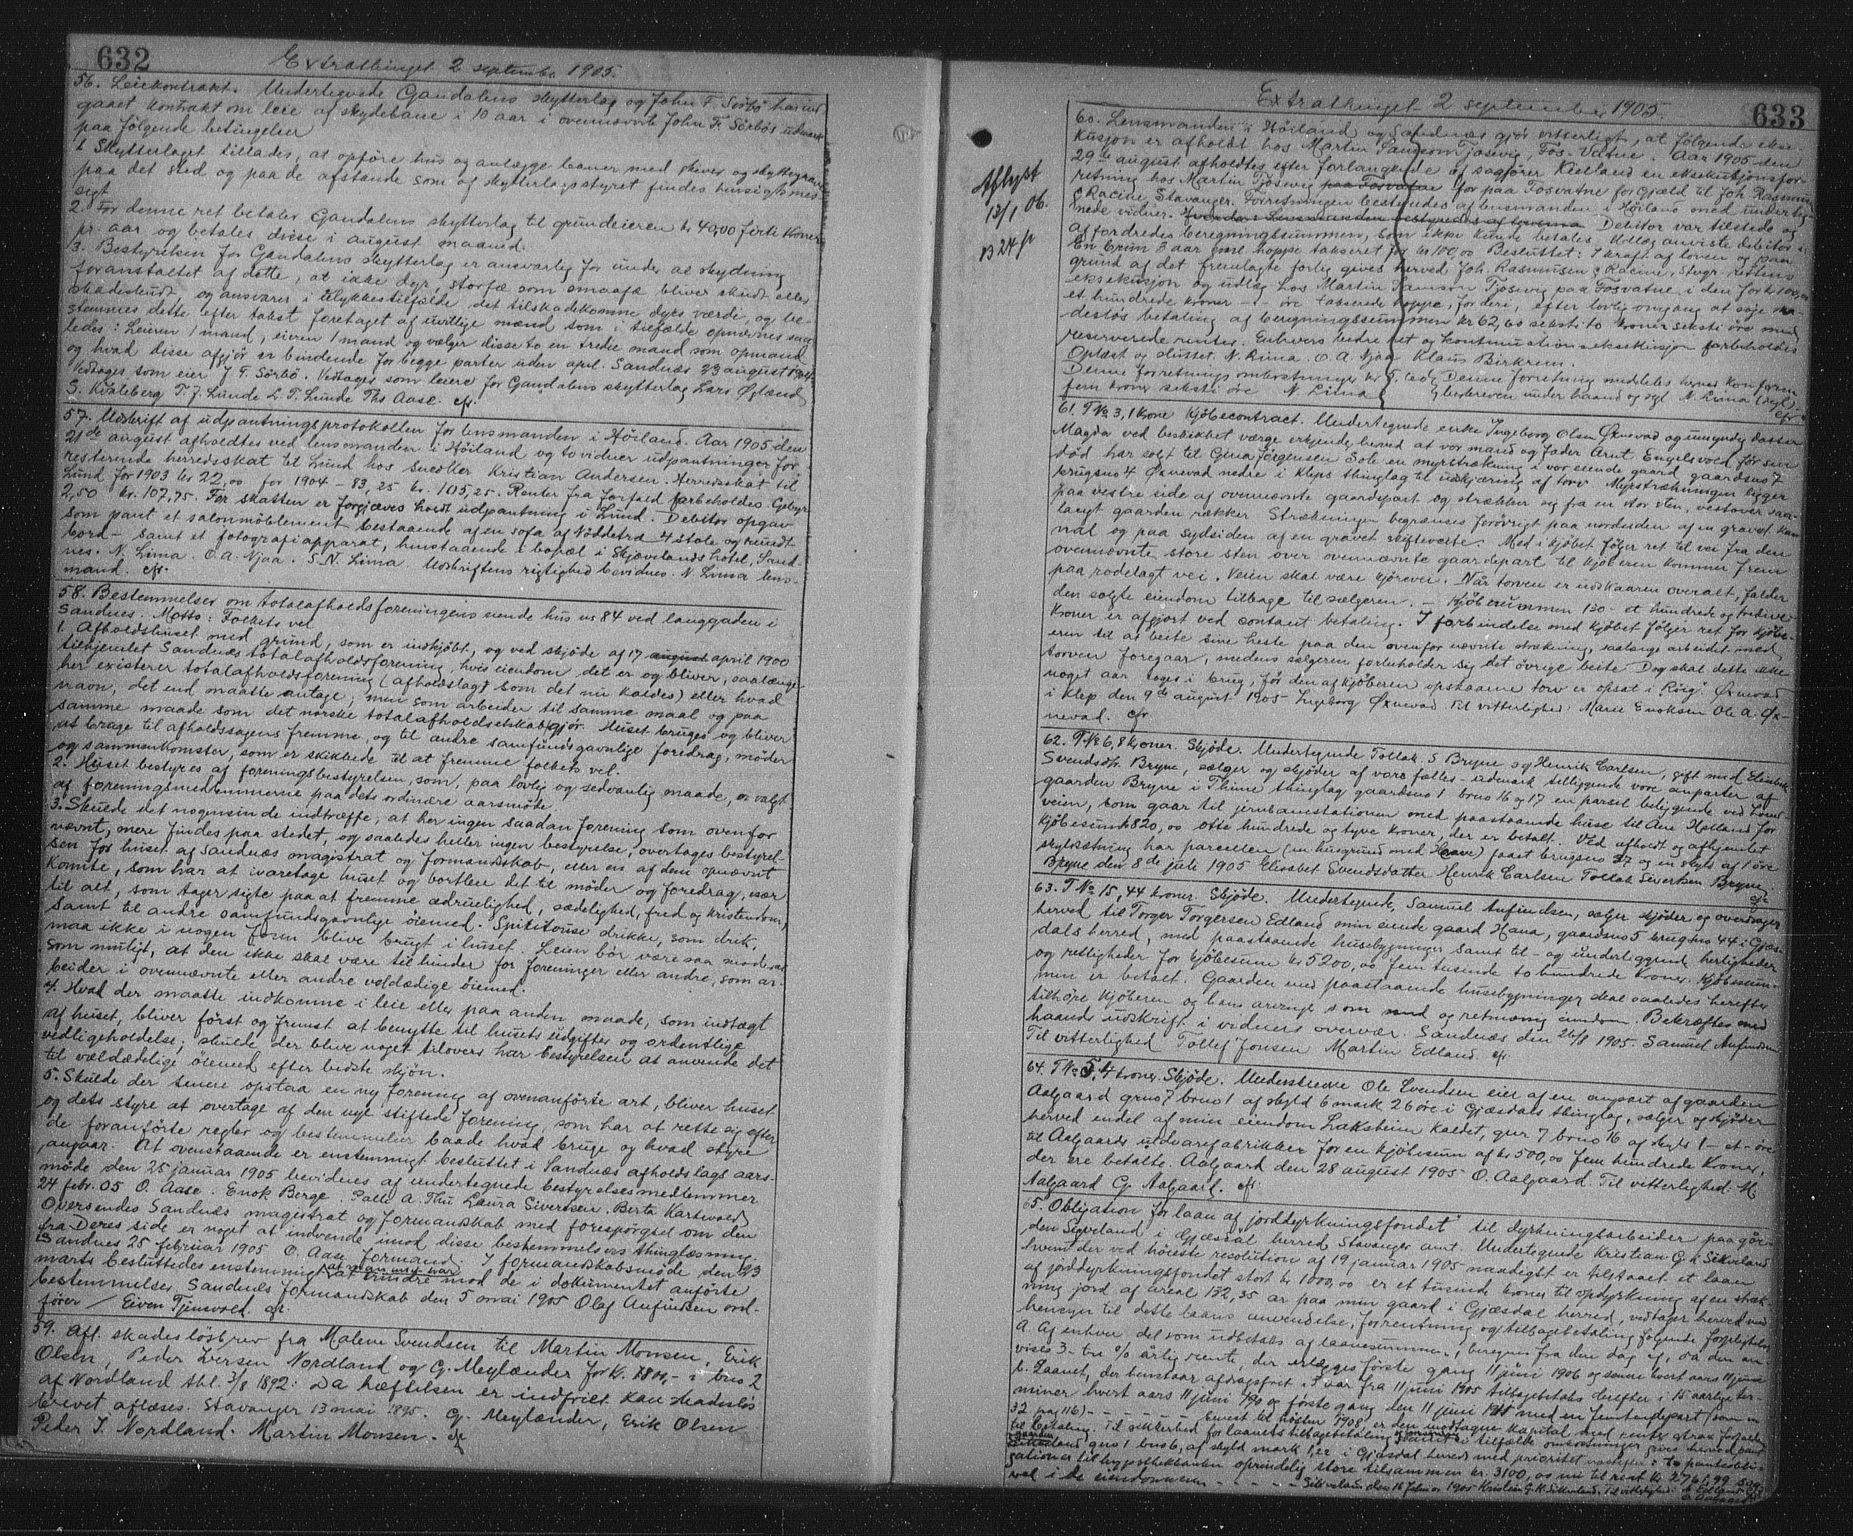 632
Extrathinget 2 septembe 1905.
56. Leiekontrakt. Undertegnede Gandalens skytterlag og John F. Sörbö har ind
gaaet kontrakt om leie af skydebane i 10 aar i ovennævnte John F. Sörbös udmark
paa fölgende betingelser
1 Skytterlaget tillades, at opföre hus og anlægge baner med skiver og skyttegrave
paa det sted og paa de afstande som af skytterlagsstyret findes hensigtsmes-
sigt
2. For denne ret betaler Gandalens skytterlag til grundeieren kr 40,00 firti kroner
pr. aar og betales disse i august maaned.
3. Bestyrelsen for Gandalens skytterlag er ansvarlig for under al skydning
foranstaltet af dette, at ikke dyr, storfæ som smaafæ bliver skudt eller
skadeskudt og ansvarer i tilykkestilfælde det tilskadekomne dyrs værdi, og be-
stemmes dette efter takst foretaget af uvillige mænd som i tilfælde opnævnes saa
ledes: Leieren 1 mand, eieren 1 mand og vælger disse to en tredie mand som opmand
og hvad disse afgjör er bindende for begge parter uden apel. Sandnæs 23 august 1904
Vedtages som eier J F. Sörbö. Vedtages som leiere for Gandalens skytterlag Lars Öglænd
S. Kvaleberg T. J. Lunde L. T. Lunde Ths Aase. cfr.
57. Udskrift af udpantningsprotokollen for lensmanden i Höiland. Aar 1905 den
21de august afholdtes ved lensmanden i Höiland og to vidner udpantninger for
resterende herredsskat til Lund hos snedker Kristian Andersen. Herredsskat til
Lund for 1903 kr 22,00 for 1904 - 83,25 kr. 105,25. Renter fra forfald forbeholdes. Gebyr
2,50 kr. 107,75. For skatten er forgjæves havdt udpantning i Lund. Debitor opgav
som pant et salonmöblement bestaaende af en sofa af Nöddetræ 4 stole og rundt
bord - samt et fotografiapparat, henstaaende i bopæl i Skjævelands hotel, Sand-
nes. N. Lima. O. A. Njaa. S. N. Lima Udskriftens rigtighed bevidnes. N. Lima lens-
mand. cfr.
58. Bestemmelser om totalafholdsforeningens eiende hus no 84 ved langgaden i
Sandnes. Motto: Folkets vel
1. Afholdshuset med grund, som er indkjöbt, og ved skjöde af 17 august april 1900
tilhjemlet Sandnæs totalafholdsforening, hvis eiendom det er og bliver, saalænge
her existerer totalafholdsforening (afholdslagt som det nu kaldes) eller hvad
navn, det end maatte antage; men som arbeider til samme maal og paa
samme maade som det norske totalafholdselskab gjör. Huset bruges og bliver
at bruge til afholdssagens fremme, og til andre samfundsgavnlige foredrag, möder
og sammenkomster, som er skikkede til at fremme folkets vel.
2. Huset bestyres af foreningsbestyrelsen, som, paa lovlig og sedvanlig maade, er valgt
af foreningsmedlemmerne paa dets ordinære aarsmöde.
3. Skulde det nogensinde indtræffe, at her ingen saadan forening som ovenfor
nævnt, mere findes paa stedet, og saaledes heller ingen bestyrelse, overtages bestyrel-
sen for huset af Sandnæs magistrat og formandskab, eller en af dem opnævnt
komite, som har at ivaretage huset og bortleie det til möder og foredrag, især
til alt, som tager sigte paa at fremme ædruelighed, sædelighed, fred og kristendom,
samt til andre samfundsgavnlige öiemed. Spitituöse drikke, som drik,
maa ikke i nogen form blive brugt i huset. Leien bör være saa moderat
som muligt, at den ikke skal være til hinder for foreninger eller andre, som ar-
beider i ovennævnte eller andre veldædige öiemed.
4. Hvad der maatte indkomme i leie eller paa anden maade, som indtægt
af huset, bliver först og fremst at benytte til husets udgifter og ordentlige
vedligeholdelse; skulde der blive noget tilovers har bestyrelsen at anvende det
til vældædelige öiemed efter bedste skjön.
5. Skulde der senere opstaa en ny forening af ovenanförte art, bliver huset
og dets styre at overtage af den nye stiftede forening, som har at rette sig efter
de foranförte regler og bestemmelser baade hvad bruge og hvad styre
angaar. At ovenstaaende er enstemmigt besluttet i Sandnæs afholdslags aars-
möde den 25 januar 1905 bevidnes af undertegnede bestyrelsesmedlemmer
24 febr. 05 O. Aase. Enok Berge. Palle A. Thu Laura Sivertsen. Berta Kartevold
Oversendes Sandnæs magistrat og formandskab med forespörgsel om den
fra Deres side er noget at indvende imod disse bestemmelsers thinglæsning.
Sandnes 25 februar 1905 O. Aase formand. I formandskabsmöde den 23
marts besluttedes enstemmig at man intet har at erindre mod de i dokumentet anförte
bestemmelser. Sandnæs formandskab den 5 mai 1905 Olaf Aufindsen ord-
förer / Eiven Tjensvold. cfr.
59. Afl. skadeslösbrev fra Malene Svendsen til Martin Monsen, Erik
Olsen, Peder Iversen Nordland og G. Meylænder for K. 1800,- i bno 2
af Nordland thl. 3/8 1892: Da hæftelsen er indfriet kan skadeslös
brevet aflæses. Stavanger 13 mai 1895. G. Meylænder, Erik Olsen
Peder I. Nordland. Martin Monsen. cfr
Extrathinget 2 september 1905
633
Aflyst
13/1 06.
B 24
60. Lensmanden i Höiland og Sandnæs gjör vitterligt, at fölgende ekse-
kusjon er afholdt hos Martin Samson Tjösevig, Fos-Vatne. Aar 1905 den
29de august afholdtes efter forlangende af sagförer Kielland en eksekutionsfor-
retning hos Martin Tjösvig paa Fosvatne for paa Fosvatne for gjæld til Joh. Rasmus-
& Racine, Stavanger. Forretningen bestyredes af lensmanden i Höiland med underteg
nede vidner. Debitor var tilstede og
affordredes beregningssummen, som ikke kunde betales. Udlæg anviste debitor i
En brun 3 aar gml hoppe takseret for kr 100,00 Besluttet: I kraft af loven og paa
grund af det fremlagte forlig gives herved Joh. Rasmussen & Racine, Stvgr. rettens
eksekusjon og udlæg hos Martin Samson Tjösvig paa Fosvatne i den for kr 100,00
et hundrede kroner - " - öre taxerede hoppe, for deri, efter lovlig omgang at söge ska
deslös betaling af beregningssummen kr 62,60 seksti to kroner seksti öre med
reserverede renter. Enhvers bedre ret og kontinuationseksekusjon forbeholdes
Oplæst og sluttet. N. Lima. O. A. Njaa Klaus Birkrem.
Denne forretnings omkostninger kr 5,60 Denne forretning meddeles herved konform
fem kroner seksti öre N. Lima Gjenbreven under haand og segl N. Lima (segl)
cfr
61. T№ 3, 1 krone Kjöbecontract. Undertegnede enke Ingeborg Olsen Öxnevad og umyndig datter
Magda ved beskikket værge erkjende herved at vor mand og fader Arnt Engelsvold, för sin
död har solgt til Gina Jörgensen Sole en myrstrækning i vor eiende gaard gaardsno 7
brugsno 4 Öxnevad nedre i Kleps thinglag til udskjæring af torv. Myrstrækningen ligger
paa vestre side af ovennævnte gaardepart og strækker sig fra en stor sten, vestover saa
langt gaarden rækker. Strækningen begrænses forövrigt paa nordsiden af en gravet kan
nal og paa sydsiden af en gravet skifteveite. Med i kjöbet fölger ret til vei fra den
ovennævnte store sten over ovennævnte gaardepart til kjöberen kommer frem
paa rodelagt vei. Veien skal være kjörevei. Når torven er udskaaren overalt, falder
den solgte eiendom tilbage til sælgeren. - Kjöbesummen 120 - et hundrede og tredive
kroner er afgjort ved contant betaling. I forbindelse med kjöbet fölger ret for kjöbe-
eren til at beite sine heste paa den ovenfor nævnte strækning, saalange arbeidet med
torven foregaar, medens sælgeren forbeholder sig det övrige beite. Dog skal dette ikke
noget aar tages i brug, för den af kjöberen opskaarne torv er opsat i Röig. Öxnevad
i Klep den 9de august 1905 Ingeborg Öxnevad Til vitterlighed: Marie Enoksen Ole A. Öx-
nevad. cfr
62. T№ 6, 8 kroner. Skjöde. Undertegnede Tollak S Bryne og Henrik Carlsen, gift med Elisabet
Svendsdtr Bryne, sælger og skjöder af vore fælles-udmark tilliggende vore anparter af
gaarden Bryne i Thime thinglag gaardsno 1 bno 16 og 17 en parsel beliggende ved
veien, som gaar til jernbanestationen med paastaaende huse til Ane Hetland for
kjöbesum kr 820,00 otte hundrede og tyve kroner, der er betalt. Ved afholdt og afhjemlet
skyldsætning har parcellen (en husgrund med Have) faaet brugsno 27 og en skyld af 1 öre
Bryne den 8de juli 1905 Elisabet Svendsdatter Henrik Carlsen Tollak Sivertsen Bryne
cfr
63. T№ 15, 44 kroner. Skjöde. Undertegnede, Samuel Aufindsen, sælger skjöder og overdrager
herved til Torger Torgersen Edland min eiende gaard Hana, gaardsno 5 brugsno 44 i Gjæs-
dals herred, med paastaaende husebygninger samt til- og underliggende herligheder
og rettigheder for kjöbesum kr 5200,00 fem tusende to hundrede kroner. Kjöbesum-
men er betalt. Gaarden med paastaaende husebygninger skal saaledes herefter
tilhöre kjöberen og hans arvinge som med og retmæssig eiendom. Bekræftes med
haands udskrift i vidners overvær. Sandnæs den 26/8 1905. Samuel Aufindsen
Til vitterlighed Tollef Jonsen Martin Edland. cfr.
64. T№ 5, 4 kroner. Skjöde. Understrevne Ole Svendsen eier af en anpart af gaarden
Aalgaard grno 7 brno 1 af skyld 6 mark 26 öre i Gjæsdals thinglag, sælger og skjöder
herved endel af min eiendom Laksheim kaldet, gnr 7 brno 16 af skyld 1 - et - öre
til Aalgaards uldvarefabrikker for en kjöbesum af kr 500,00 fem hundrede kroner,
der ere betalte. Aalgaard den 28 august 1905 O. Aalgaard. Til vitterlighed: M.
Aalgaard G. Aalgaard. cfr.
65. Obligation for laan af "jorddyrkningsfondet" til dyrkningsarbeider paa gaar-
den Sigveland i Gjæsdal herred, Stavanger amt. Undertegnede Kristian G. K. Sikveland
hvem der ved höieste resolution af 19 januar 1905 naadigst er tilstaaet et laan
af jorddyrkningsfondet stort kr 1000,00 er et tusinde kroner til opdyrkning af en stræk-
ning jord af areal 132,35 ar paa min gaard i Gjæsdal herred, vedtager herved med
hensyn til dette laans anvendelse, forrentning og tilbagebetaling fölgende forpligtelser
A. Af enhver del som udbetales af laanesummen, beregnes fra den dag af, da den an-
vises 3 - tre % årlig rente, der erlægges förste gang 11 juni 1906 og senere hvert aars 11 juni
b. Laanet, der henstaar afdragsfrit i 5 aar fra 11 juni 1905 tilbagebetales derefter i 15 aarlige ter-
miner hvert aars 11 juni förste gang den 11 juni 1911 med en femtendepart (som i
32 pag 116) - - - - senest til hösten 1908, er den modtagne kapital med renter strax forfalden
til betaling. Til sikkerhed for laanets tilbagebetaling samt i tilfælde omkostninger gives herved pant
i gaarden Sikveland gno 1 bno 6, af skyld mark 1,22 i Gjæsdal herred med prioritet næstefter: to panteobli-
gationer til hypothekbanken oprindelig store tilsammen kr. 3100,00 nu til rest kr 2761,99
vel i de eiendommen - - - - - Sikveland den 16 februar 1905 Kristian G. K. Sikveland. Til vitterlighed: